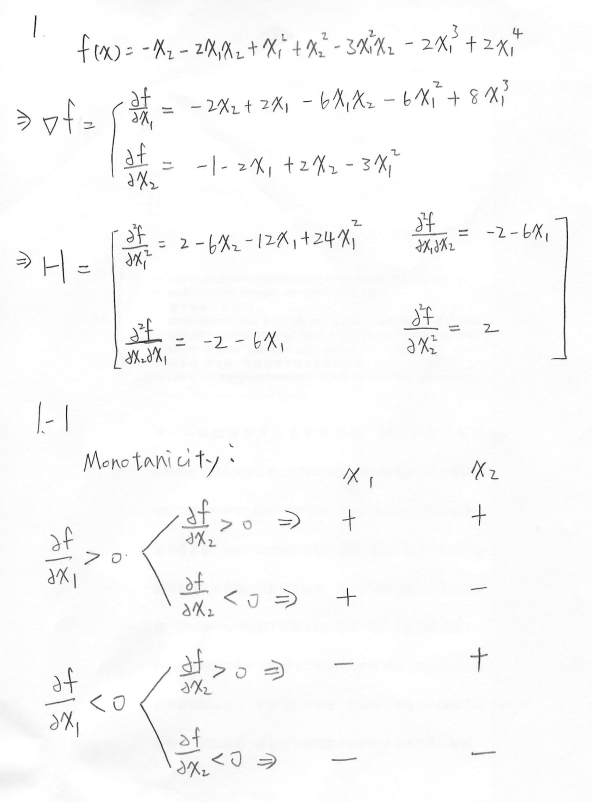 1.
f(x) = -x₂ - 2x₁x₂ + x₁² + x₂² - 3x₁²x₂ - 2x₁³ + 2x₁⁴
⇒ ∇f = { ∂f/∂x₁ = -2x₂ + 2x₁ - 6x₁x₂ - 6x₁² + 8x₁³
∂f/∂x₂ = -1 - 2x₁ + 2x₂ - 3x₁²
⇒ H = [ ∂²f/∂x₁² = 2 - 6x₂ - 12x₁ + 24x₁² ∂²f/∂x₁∂x₂ = -2 - 6x₁
∂²f/∂x₂∂x₁ = -2 - 6x₁ ∂²f/∂x₂² = 2 ]
1-1
Monotanicity: x₁ x₂
∂f/∂x₁ > 0. ∂f/∂x₂ > 0 ⇒ + +
∂f/∂x₂ < 0 ⇒ + −
∂f/∂x₁ < 0 ∂f/∂x₂ > 0 ⇒ − +
∂f/∂x₂ < 0 ⇒ − −